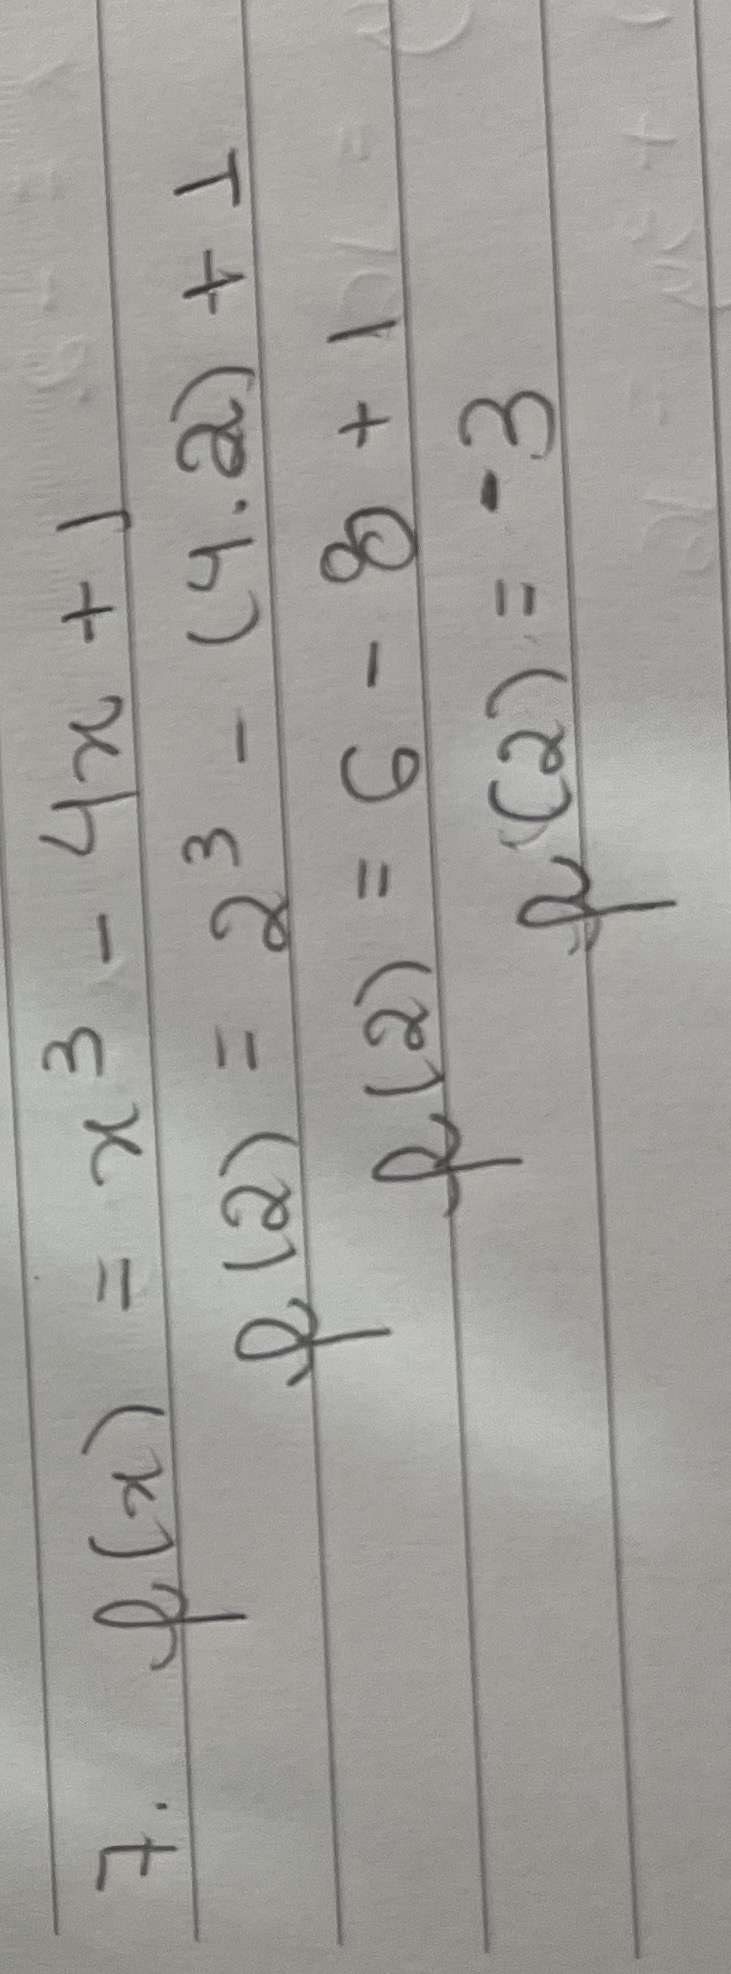 7. f(x) = x³ - 4x + 1
f(2) = 2³ - (4.2) + 1
f(2) = 6 - 8 + 1
f(2) = -3